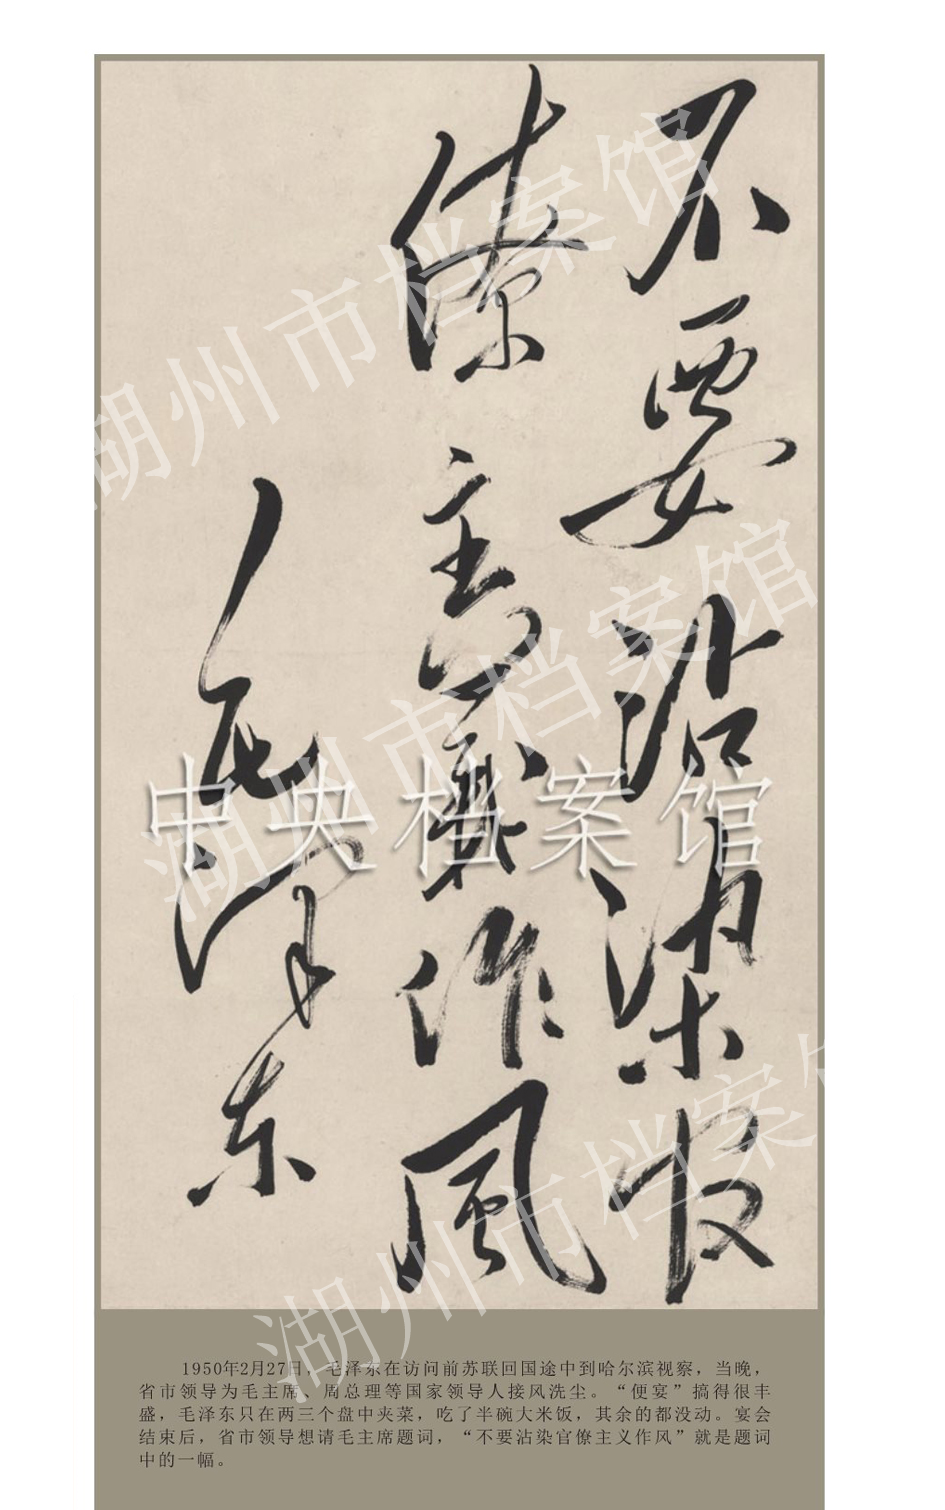 不要沾染官
僚主義作風
毛泽东
中央档案馆
湖州市档案馆
湖州市档案馆
湖州市档案馆
1950年2月27日，毛泽东在访问前苏联回国途中到哈尔滨视察，当晚，
省市领导为毛主席、周总理等国家领导人接风洗尘。“便宴”搞得很丰
盛，毛泽东只在两三个盘中夹菜，吃了半碗大米饭，其余的都没动。宴会
结束后，省市领导想请毛主席题词，“不要沾染官僚主义作风”就是题词
中的一幅。